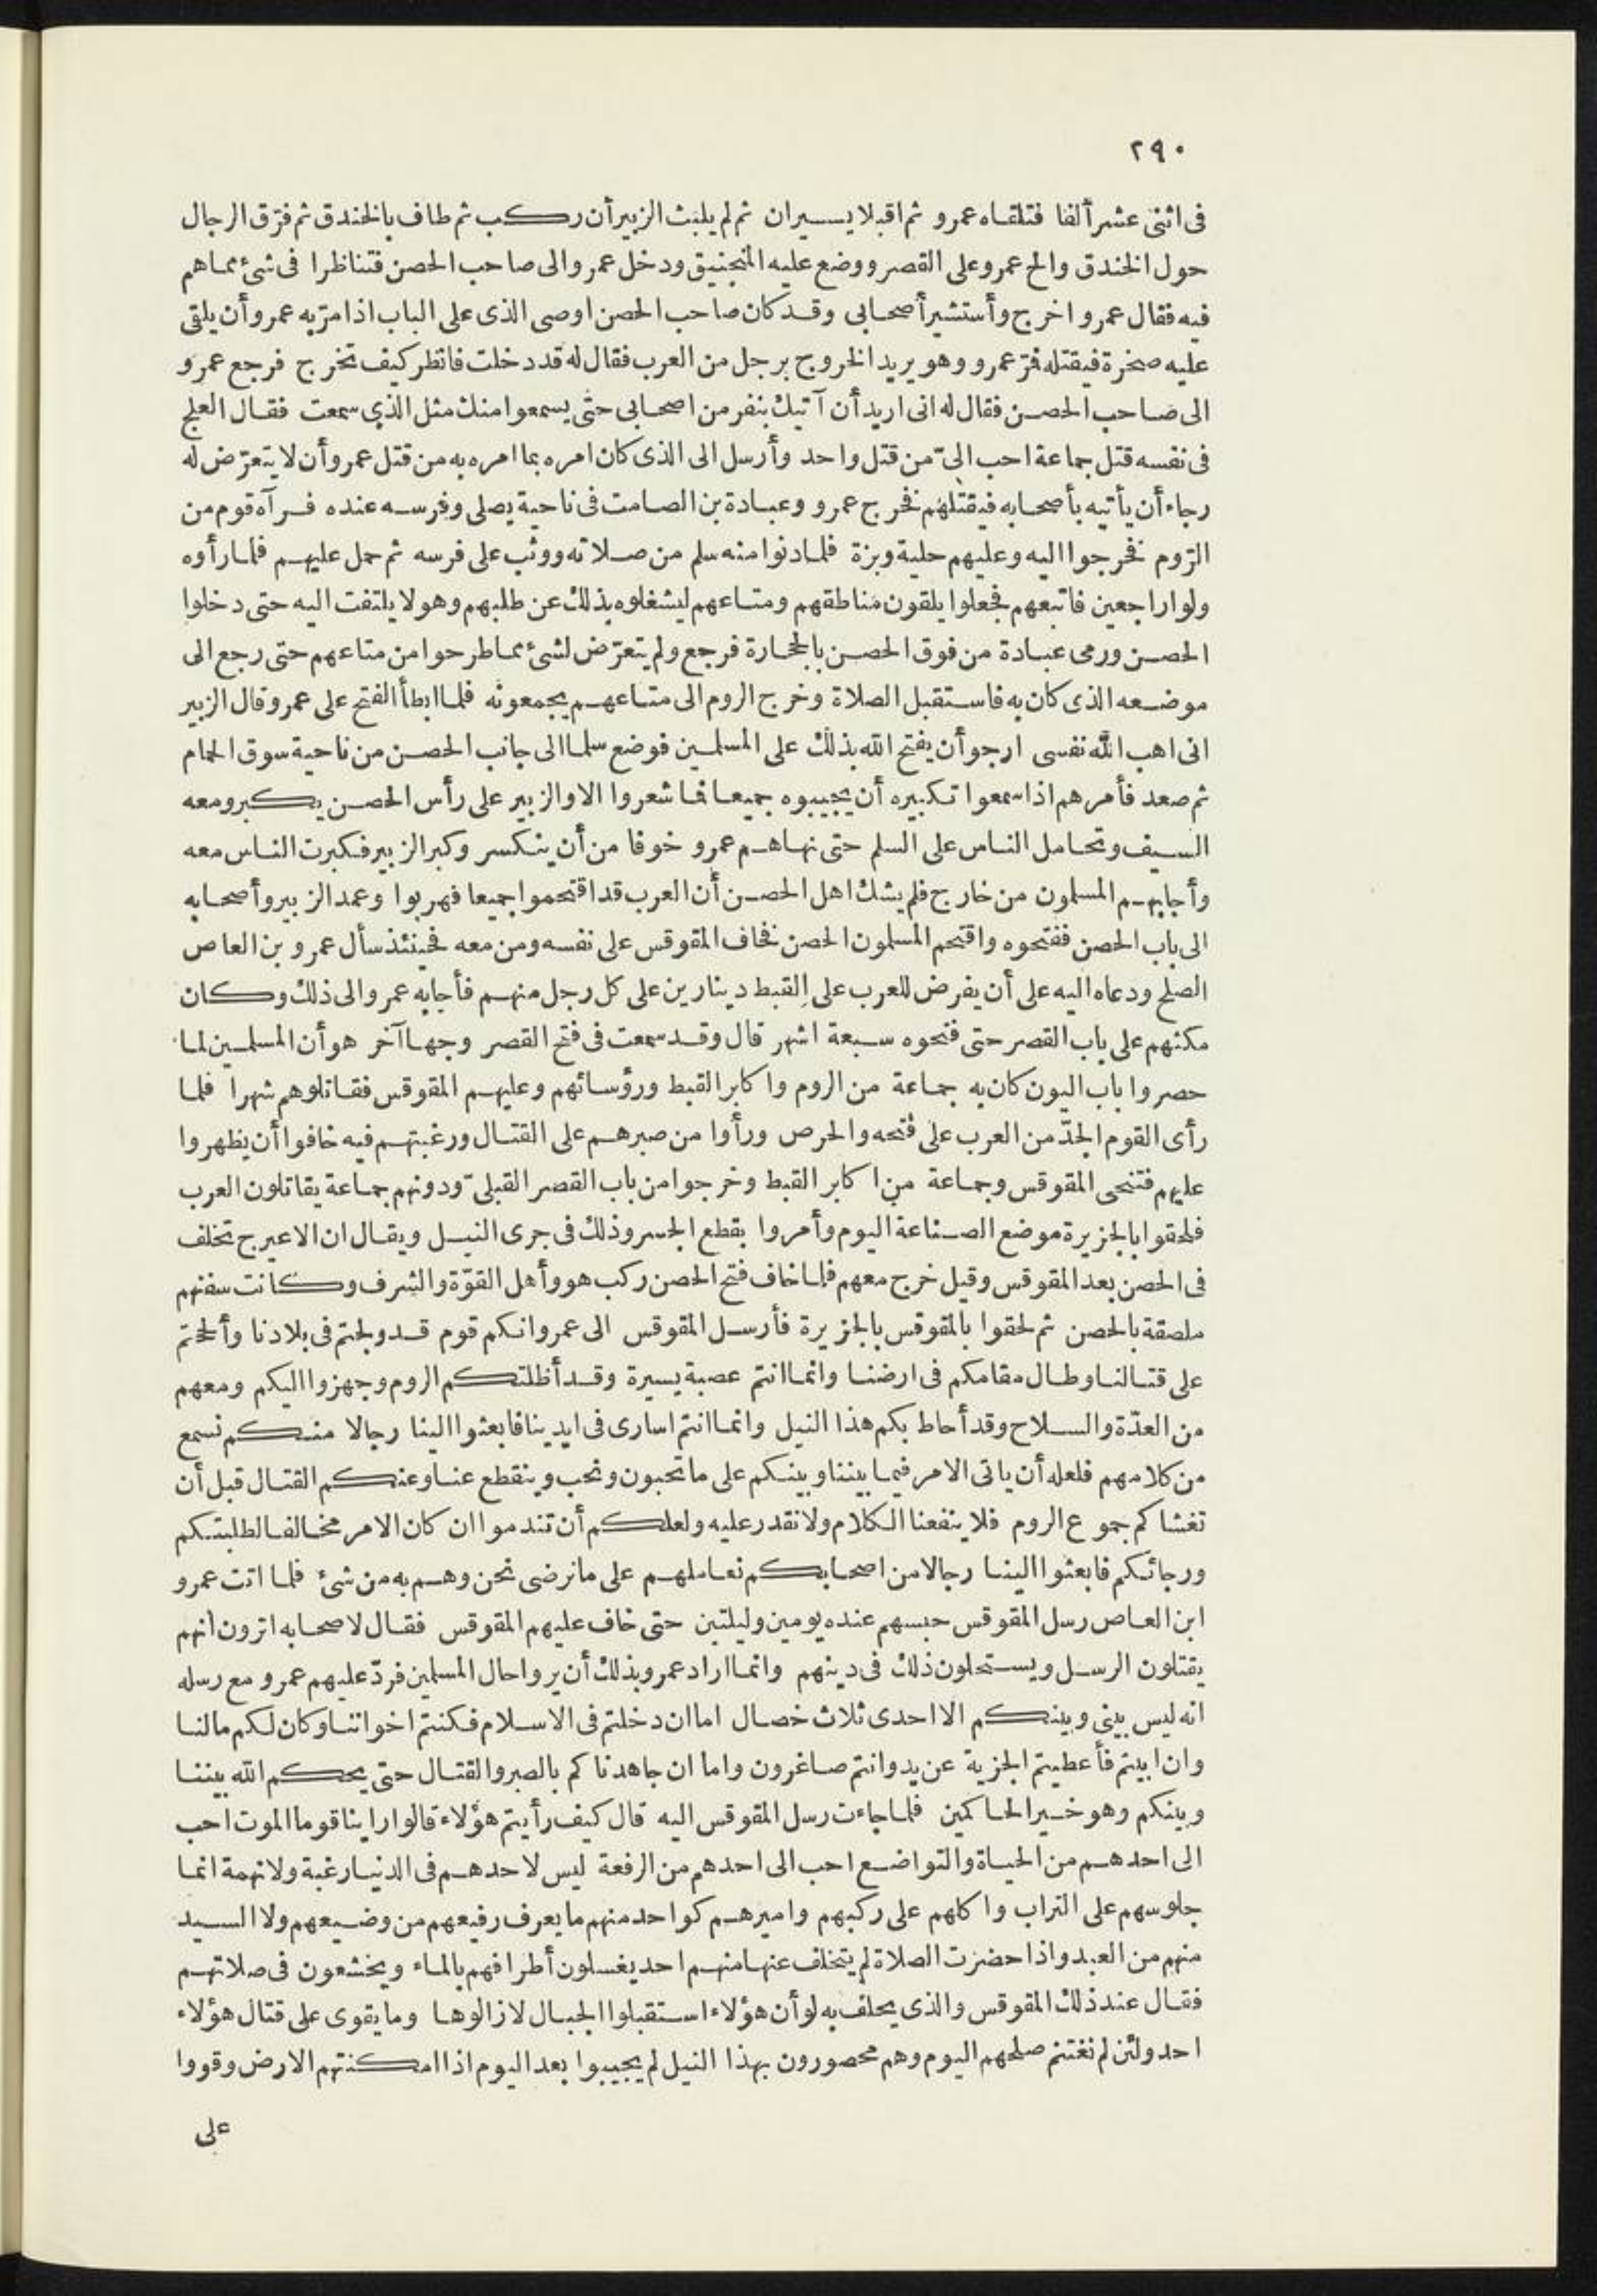 ٢٩٠
فى اثنى عشر ألفا فتلقاه عمرو ثم اقبلا يسيران ثم لم يلبث الزبير أن ركب ثم طاف بالخندق ثم فرّق الرجال
حول الخندق والح عمرو على القصر ووضع عليه المنجنيق ودخل عمرو الى صاحب الحصن فتناظرا فى شئ مما هم
فيه فقال عمرو اخرج وأستشير أصحابى وقد كان صاحب الحصن اوصى الذى على الباب اذا مرّ به عمرو أن يلقى
عليه صخرة فيقتله فمرّ عمرو وهو يريد الخروج برجل من العرب فقال له قد دخلت فانظر كيف تخرج فرجع عمرو
الى صاحب الحصن فقال له انى اريد أن آتيك بنفر من اصحابى حتى يسمعوا منك مثل الذى سمعت فقال العلج
فى نفسه قتل جماعة احب الىّ من قتل واحد وأرسل الى الذى كان امره بما امره به من قتل عمرو أن لا يتعرّض له
رجاء أن يأتيه بأصحابه فيقتلهم فخرج عمرو وعبادة بن الصامت فى ناحية يصلى وفرسه عنده فرآه قوم من
الروم فخرجوا اليه وعليهم حلية وبزة فلما دنوا منه سلم من صلاته ووثب على فرسه ثم حمل عليهم فلما رأوه
ولوا راجعين فاتبعهم فجعلوا يلقون مناطقهم ومتاعهم ليشغلوه بذلك عن طلبهم وهو لا يلتفت اليه حتى دخلوا
الحصن ورمى عبادة من فوق الحصن بالحجارة فرجع ولم يتعرّض لشئ مما طرحوا من متاعهم حتى رجع الى
موضعه الذى كان به فاستقبل الصلاة وخرج الروم الى متاعهم يجمعونه فلما ابطأ الفتح على عمرو قال الزبير
انى اهب الله نفسى ارجو أن يفتح الله بذلك على المسلمين فوضع سلما الى جانب الحصن من ناحية سوق الحمام
ثم صعد فأمرهم اذا سمعوا تكبيره أن يجيبوه جميعا فما شعروا الا والزبير على رأس الحصن يكبر ومعه
السيف وتحامل الناس على السلم حتى نهاهم عمرو خوفا من أن ينكسر وكبر الزبير فكبرت الناس معه
وأجابهم المسلمون من خارج فلم يشك اهل الحصن أن العرب قد اقتحموا جميعا فهربوا وعمد الزبير وأصحابه
الى باب الحصن ففتحوه واقتحم المسلمون الحصن فخاف المقوقس على نفسه ومن معه فحينئذ سأل عمرو بن العاص
الصلح ودعاه اليه على أن يفرض للعرب على القبط دينارين على كل رجل منهم فأجابه عمرو الى ذلك وكان
مكثهم على باب القصر حتى فتحوه سبعة اشهر قال وقد سمعت فى فتح القصر وجها آخر هو أن المسلمين لما
حصروا باب اليون كان به جماعة من الروم واكابر القبط ورؤسائهم وعليهم المقوقس فقاتلوهم شهرا فلما
رأى القوم الجدّ من العرب على فتحه والحرص ورأوا من صبرهم على القتال ورغبتهم فيه خافوا أن يظهروا
عليهم فتنحى المقوقس وجماعة من اكابر القبط وخرجوا من باب القصر القبلىّ ودونهم جماعة يقاتلون العرب
فلحقوا بالجزيرة موضع الصناعة اليوم وأمروا بقطع الجسر وذلك فى جرى النيل ويقال ان الاعيرج تخلف
فى الحصن بعد المقوقس وقيل خرج معهم فلما خاف فتح الحصن ركب هو وأهل القوّة والشرف وكانت سفنهم
ملصقة بالحصن ثم لحقوا بالمقوقس بالجزيرة فأرسل المقوقس الى عمرو انكم قوم قد ولجتم فى بلادنا وألححتم
على قتالنا وطال مقامكم فى ارضنا وانما انتم عصبة يسيرة وقد أظلتكم الروم وجهزوا اليكم ومعهم
من العدّة والسلاح وقد أحاط بكم هذا النيل وانما انتم اسارى فى ايدينا فابعثوا الينا رجالا منكم نسمع
من كلامهم فلعله أن ياتى الامر فيما بيننا وبينكم على ما تحبون ونحب وينقطع عنا وعنكم القتال قبل أن
تغشاكم جموع الروم فلا ينفعنا الكلام ولا نقدر عليه ولعلكم أن تندموا ان كان الامر مخالفا لطلبتكم
ورجائكم فابعثوا الينا رجالا من اصحابكم نعاملهم على ما نرضى نحن وهم به من شئ فلما اتت عمرو
ابن العاص رسل المقوقس حبسهم عنده يومين وليلتين حتى خاف عليهم المقوقس فقال لاصحابه اترون انهم
يقتلون الرسل ويستحلون ذلك فى دينهم وانما اراد عمرو بذلك أن يروا حال المسلمين فردّ عليهم عمرو مع رسله
انه ليس بينى وبينكم الا احدى ثلاث خصال اما ان دخلتم فى الاسلام فكنتم اخواننا وكان لكم مالنا
وان ابيتم فأعطيتم الجزية عن يد وانتم صاغرون واما ان جاهدناكم بالصبر والقتال حتى يحكم الله بيننا
وبينكم وهو خير الحاكمين فلما جاءت رسل المقوقس اليه قال كيف رأيتم هؤلاء قالوا راينا قوما الموت احب
الى احدهم من الحياة والتواضع احب الى احدهم من الرفعة ليس لاحدهم فى الدنيا رغبة ولا نهمة انما
جلوسهم على التراب واكلهم على ركبهم واميرهم كواحد منهم ما يعرف رفيعهم من وضيعهم ولا السيد
منهم من العبد واذا حضرت الصلاة لم يتخلف عنها منهم احد يغسلون أطرافهم بالماء ويخشعون فى صلاتهم
فقال عند ذلك المقوقس والذى يحلف به لو أن هؤلاء استقبلوا الجبال لازالوها وما يقوى على قتال هؤلاء
احد ولئن لم نغتنم صلحهم اليوم وهم محصورون بهذا النيل لم يجيبوا بعد اليوم اذا امكنتهم الارض وقووا
على